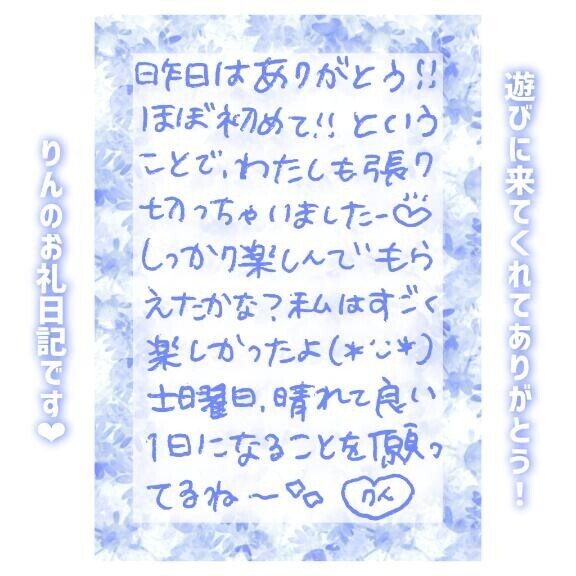 遊びに来てくれてありがとう!
昨日はありがとう!!
ほぼ初めて!!という
ことで、わたしも張り
切っちゃいましたー♡
しっかり楽しんでもら
えたかな?私はすごく
楽しかったよ(*ˊᵕˋ*)
土曜日、晴れて良い
1日になることを願っ
てるね〜
りん
りんのお礼日記です❤